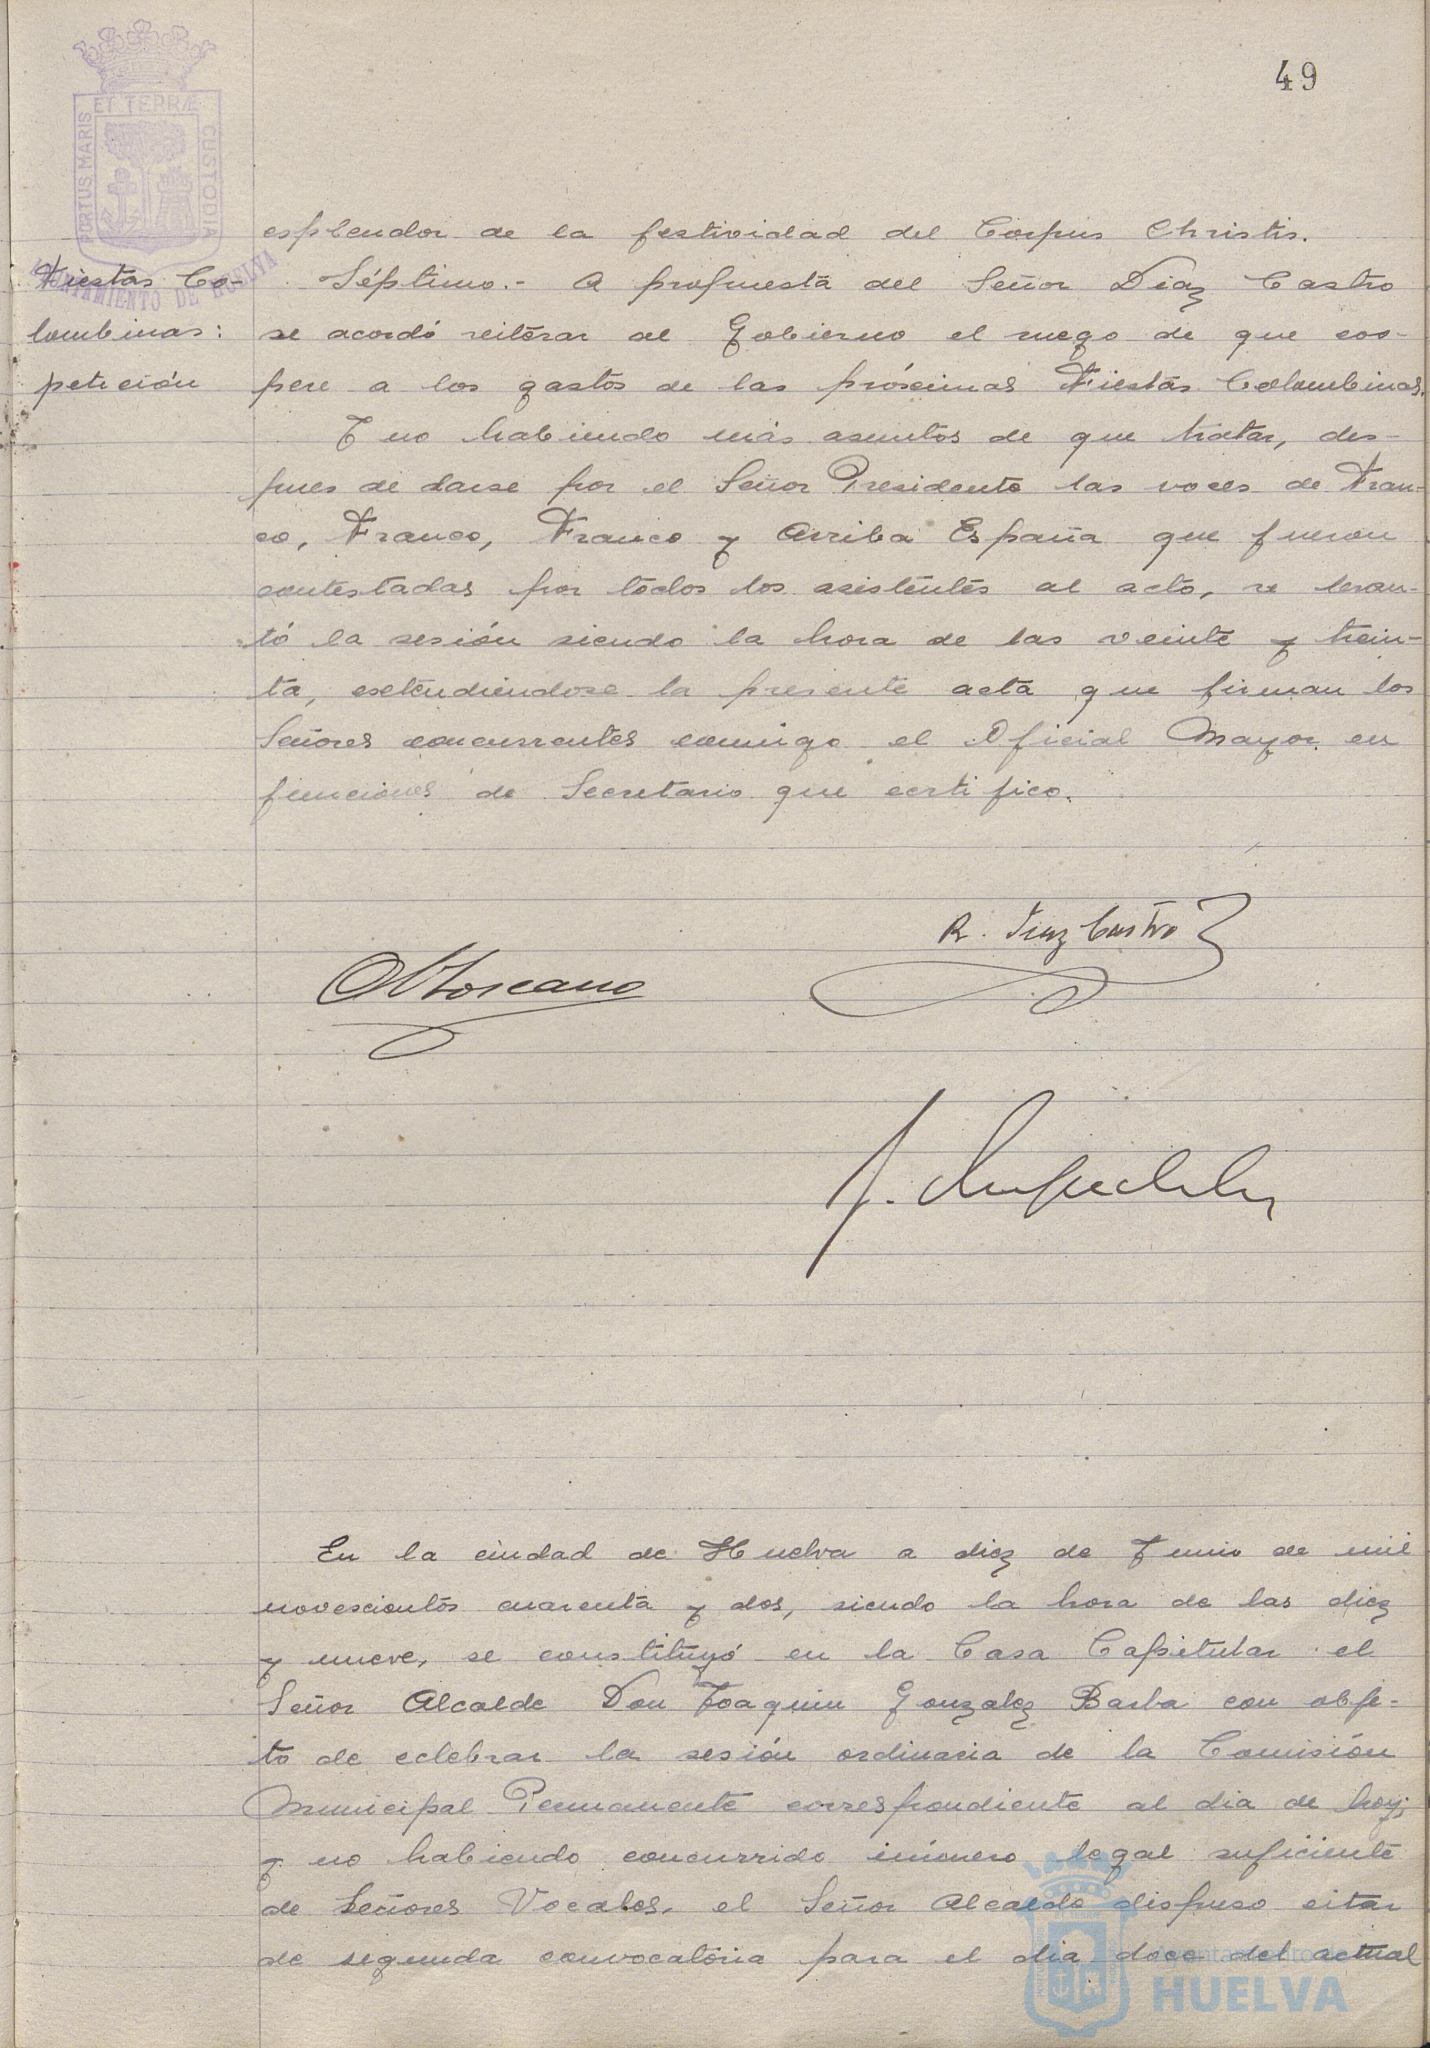 49
PORTUS MARIS ET TERRÆ CUSTODIA
AYUNTAMIENTO DE HUELVA
Fiestas Co-
lombinas:
petición
esplendor de la festividad del Corpus Christis.
Séptimo.- A propuesta del Señor Diaz Castro
se acordó reiterar al Gobierno el ruego de que coo-
pere a los gastos de las próximas Fiestas Colombinas.
Y no habiendo más asuntos de que tratar, des-
pues de darse por el Señor Presidente las voces de Fran-
co, Franco, Franco y Arriba España que fueron
contestadas por todos los asistentes al acto, se levan-
tó la sesión siendo la hora de las veinte y trein-
ta, extendiendose la presente acta que firman los
Señores concurrentes conmigo el Oficial Mayor en
funciones de Secretario que certifico.
R. Diaz Castro
Toscano
En la ciudad de Huelva a diez de Junio de mil
novescientos cuarenta y dos, siendo la hora de las diez
y nueve, se constituyó en la Casa Capitular el
Señor Alcalde Don Joaquin Gonzalez Barba con obje-
to de celebrar la sesión ordinaria de la Comisión
Municipal Permanente correspondiente al dia de hoy;
y no habiendo concurrido número legal suficiente
de Señores Vocales, el Señor Alcalde dispuso citar
de segunda convocatoria para el dia doce del actual
Ayuntamiento de
HUELVA